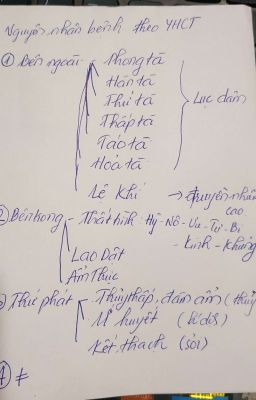 Nguyên nhân bệnh theo YHCT
① Bên ngoài - Phong tà
Hàn tà
Thử tà
Thấp tà
Táo tà
Hoả tà
Lục dâm
Lệ Khí → truyền nhiễm cao
② Bên trong - Thất tình Hỷ - Nộ - Ưu - Tư - Bi
- Kinh - Khủng
Lao Dật
Ẩm Thực
③ Thứ phát - Thuỷ thấp, đàm ẩm (thuỷ
Ứ huyết
Kết thạch (sỏi)
④ ≠